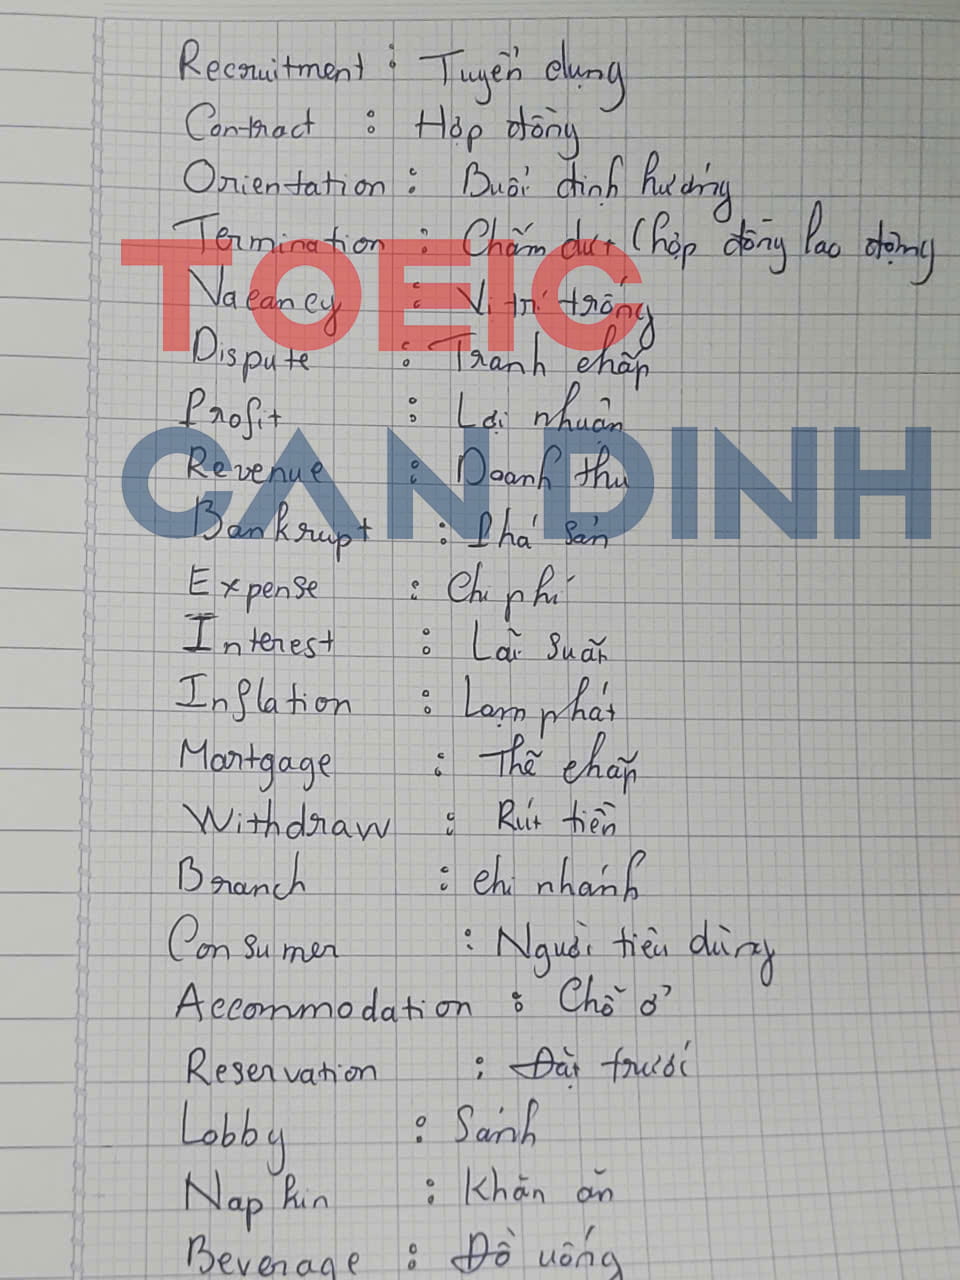 Recruitment : Tuyển dụng
Contract : Hợp đồng
Orientation : Buổi định hướng
Termination : Chấm dứt (hợp đồng lao động
TOEIC
Vacancy : Vị trí trống
Dispute : Tranh chấp
Profit : Lợi nhuận
CAN DINH
Revenue : Doanh thu
Bankrupt : Phá sản
Expense : Chi phí
Interest : Lãi suất
Inflation : Lạm phát
Mortgage : Thế chấp
Withdraw : Rút tiền
Branch : chi nhánh
Consumer : Người tiêu dùng
Accommodation : Chỗ ở
Reservation : Đặt trước
Lobby : Sảnh
Napkin : Khăn ăn
Beverage : Đồ uống